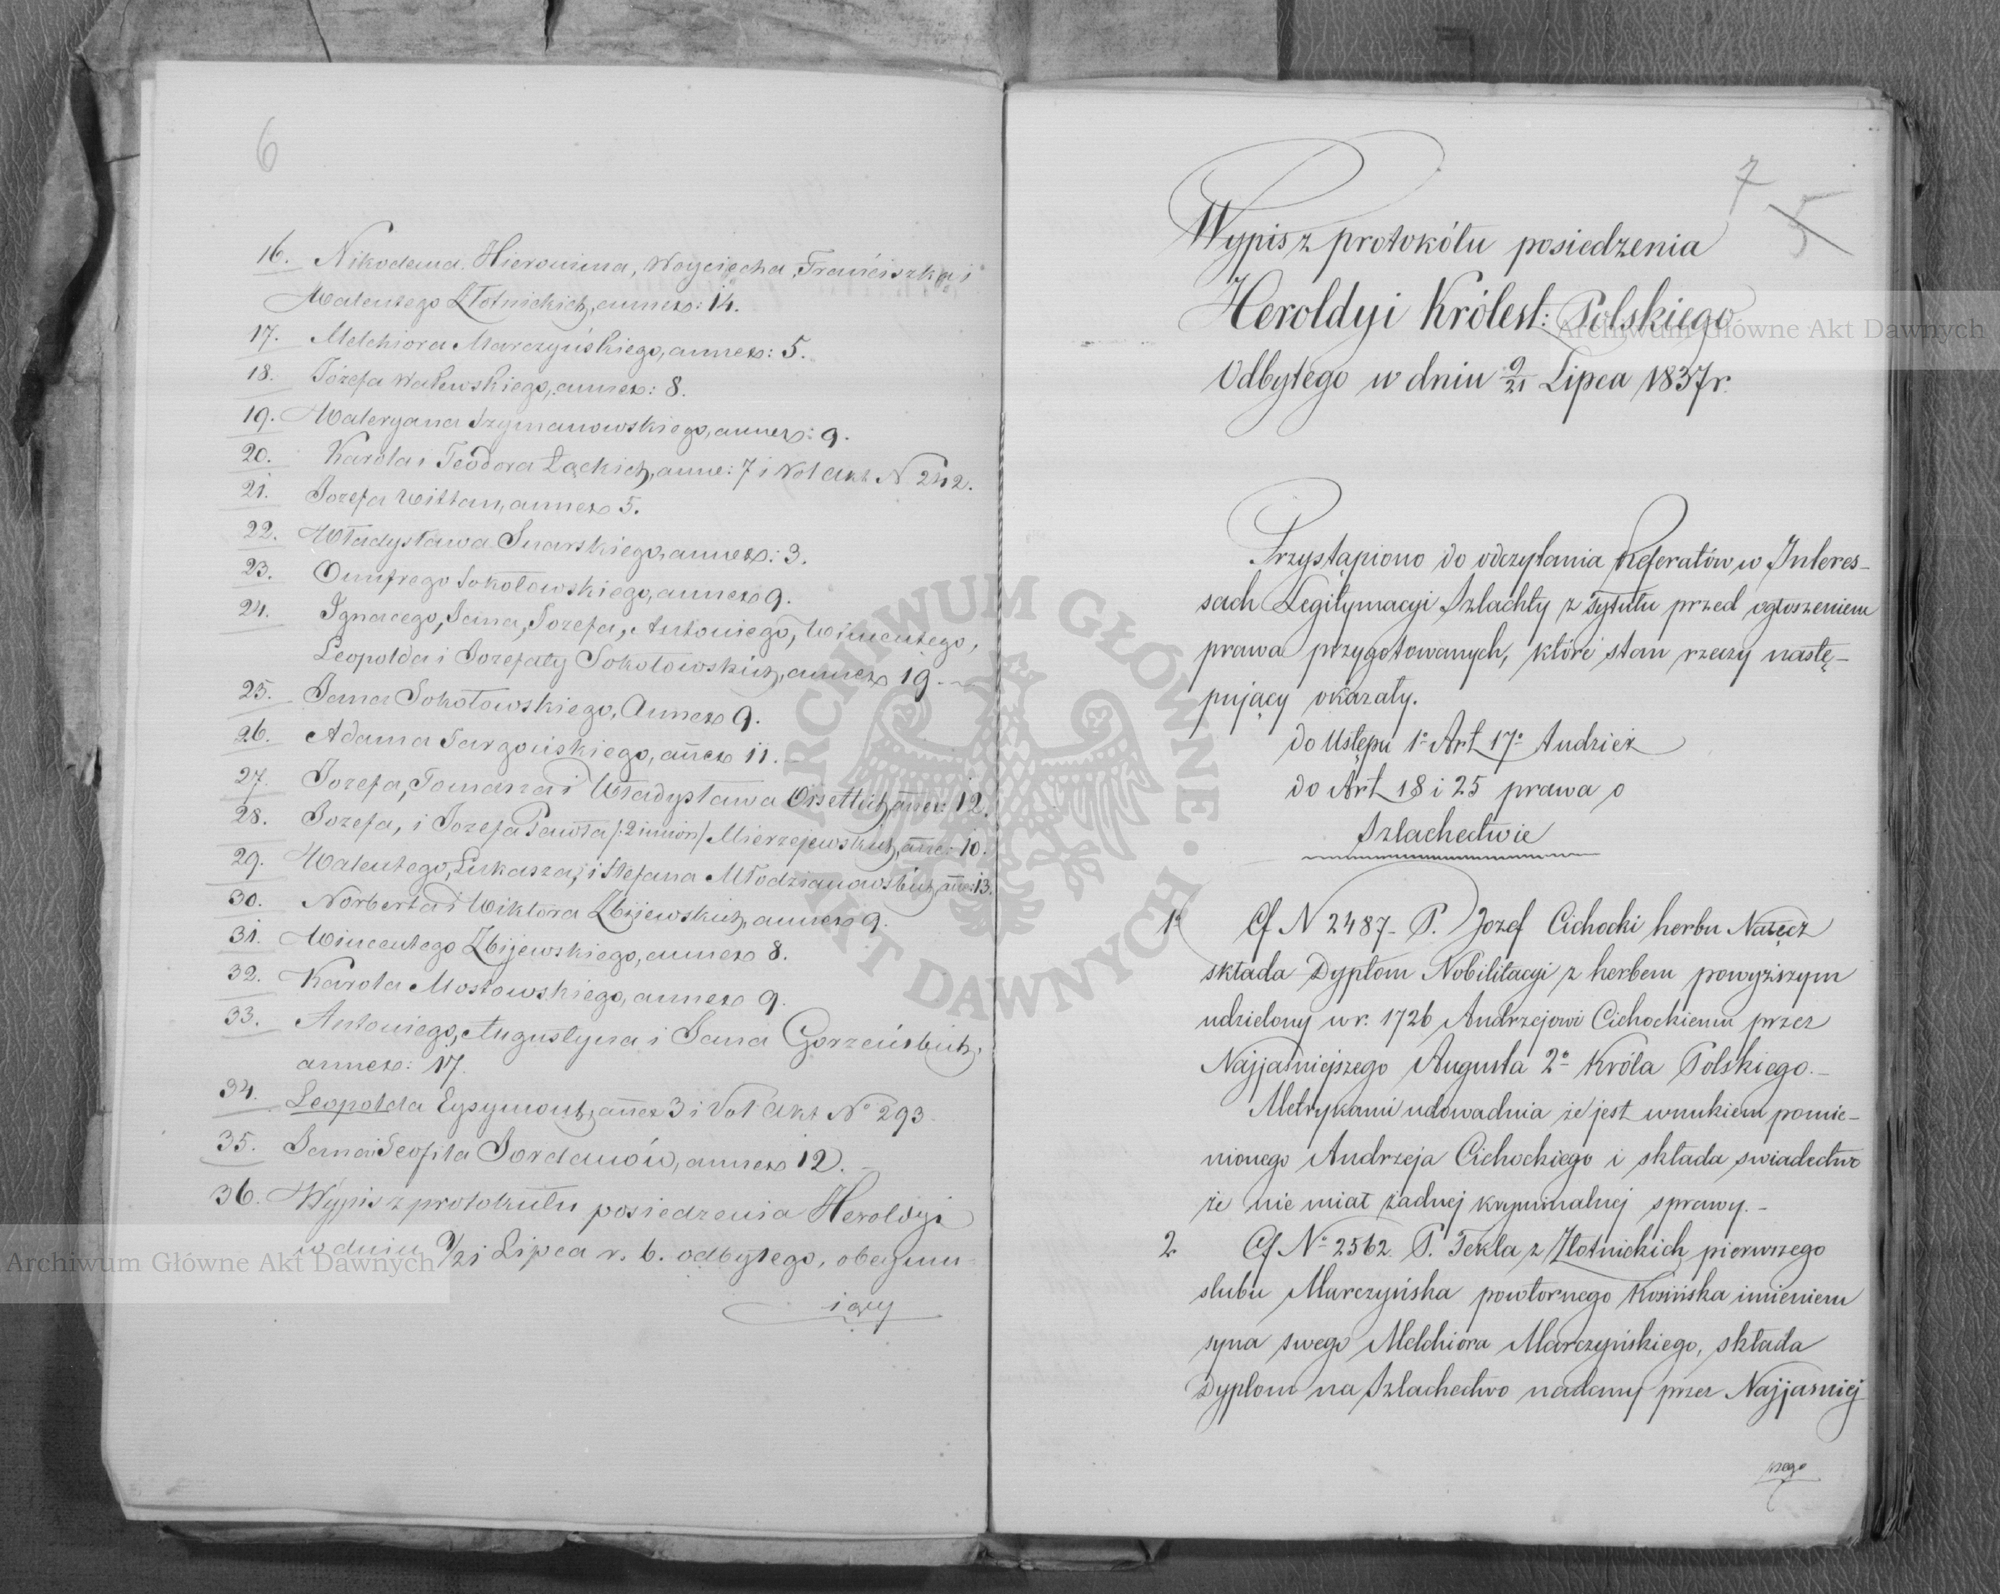 6
16. Nikodema, Hieronima, Woyciecha, Franciszka i
Walentego Złotnickich, annex: 14.
17. Melchiora Marczyńskiego, annex: 5.
18. Józefa Walewskiego, annex: 8.
19. Waleryana Szymanowskiego, annex: 9.
20. Karola i Teodora Łąckich, anne: 7 i Vol Akt N 242.
21. Jozefa Wittan, annex 5.
22. Władysława Snarskiego, annex: 3.
23. Onufrego Sokołowskiego, annex 9.
24. Ignacego, Jana, Jozefa, Antoniego, Wincentego,
Leopolda i Jozefaty Sokołowskich, annex 19.
25. Jana Sokołowskiego, Annex 9.
26. Adama Targońskiego, añex 11.
27. Jozefa, Tomasza i Władysława Orsettich, añex: 12.
28. Jozefa, i Jozefa Pawła /:2 imion/ Mierzejewskich, añe: 10.
29. Walentego, Łukasza, i Stefana Młodzianowskich, añe: 13.
30. Norberta i Wiktora Zbijewskich, annex 9.
31. Wincentego Zbijewskiego, annex 8.
32. Karola Mostowskiego, annex 9.
33. Antoniego, Augustyna i Jana Gorzeńskich,
annex: 17.
34. Leopolda Eysymont, añex 3 i Vol Akt No 293.
35. Jana i Teofila Jordanów, annex 12.
36. Wypis z protokułu posiedzenia Heroldyi
w dniu 9/21 Lipca r. b. odbytego, obeymu-
iący
7
5
Wypis z protokółu posiedzenia
Heroldyi Królest: Polskiego
Odbytego w dniu 9/21 Lipca 1837 r.
Przystąpiono do odczytania Referatów w Interes-
sach Legitymacyi Szlachty z tytułu przed ogłoszeniem
prawa przygotowanych, które stan rzeczy nastę-
pujący okazały.
do Ustępu 1o Art 17o Tudzież
do Art 18 i 25 prawa o
Szlachectwie
1o Cf N 2487 - P. Jozef Cichocki herbu Nałęcz
składa Dyplom Nobilitacyi z herbem powyższym
udzielony w r. 1726 Andrzejowi Cichockiemu przez
Najjaśniejszego Augusta 2o Króla Polskiego. -
Metrykami udowadnia że jest wnukiem pomie-
nionego Andrzeja Cichockiego i składa swiadectwo
że nie miał żadnej kryminalnej sprawy. -
2 Cf No 2562. P. Tekla z Złotnickich pierwszego
slubu Marczyńska powtornego Kosińska imieniem
syna swego Melchiora Marczyńskiego, składa
Dyplom na Szlachectwo nadany przez Najjasniej
szego
Archiwum Główne Akt Dawnych
Archiwum Główne Akt Dawnych
ARCHIWUM GŁÓWNE · AKT DAWNYCH ·